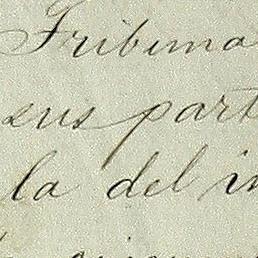 Tribuna
sus part
la del in